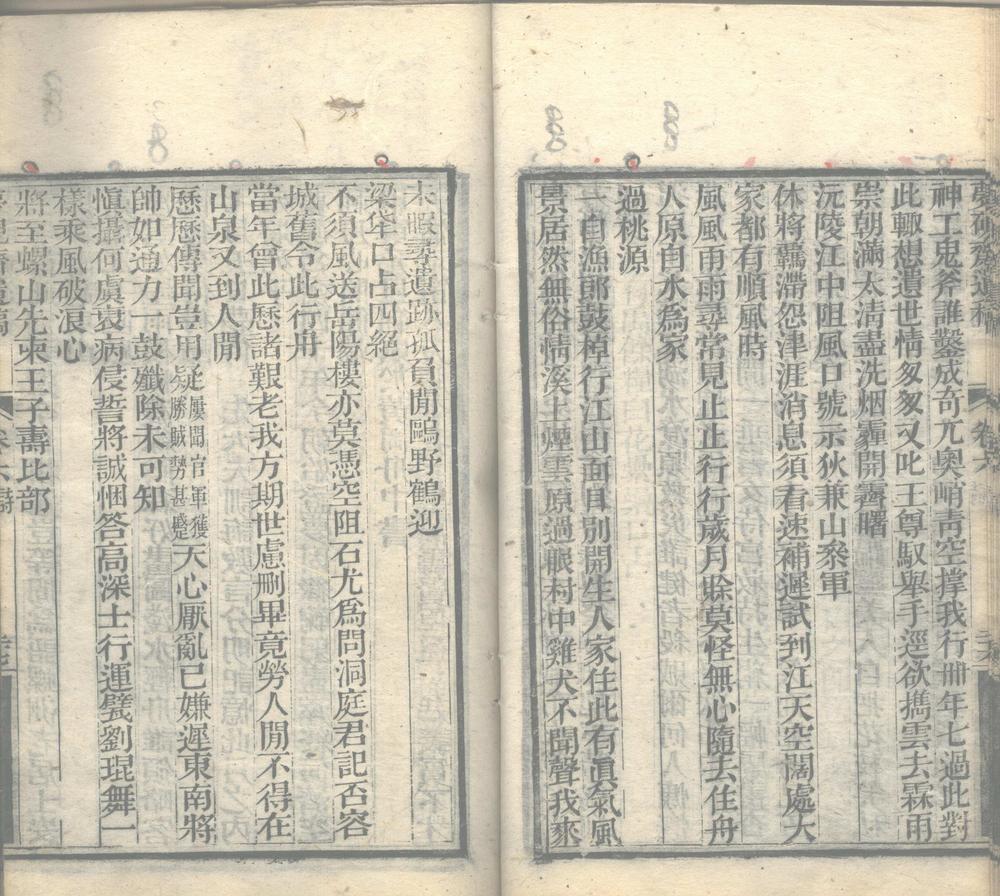 夢硯齋遺稿 卷六
神工鬼斧誰鑿成奇兀奧峭靑空撐我行卌年七過此對
此輙想遺世情匆匆又叱王尊馭舉手逕欲擕雲去霖雨
崇朝滿太淸盡洗烟霾開霽曙
沅陵江中阻風口號示狄兼山叅軍
休將羈滯怨津涯消息須看速補遲試到江天空闊處大
家都有順風時
風風雨雨尋常見止止行行歲月賒莫怪無心隨去住舟
人原自水爲家
過桃源
一自漁郎鼓棹行江山面目別開生人家住此有眞氣風
景居然無俗情溪上煙雲原過眼村中雞犬不聞聲我來
未暇尋遺跡孤負閒鷗野鶴迎
口占四絕
不須風送岳陽樓亦莫憑空阻石尤爲問洞庭君記否容
城舊令此行舟
當年曾此歷諸艱老我方期世慮刪畢竟勞人閒不得在
山泉又到人閒
歷歷傳聞豈用疑屢聞官軍獲勝賊勢甚蹙天心厭亂已嫌遲東南將
帥如通力一鼓殲除未可知
愼攝何虞衰病侵誓將誠悃答高深士行運甓劉琨舞一
樣乘風破浪心
將至螺山先柬王子壽比部
卷六 詩